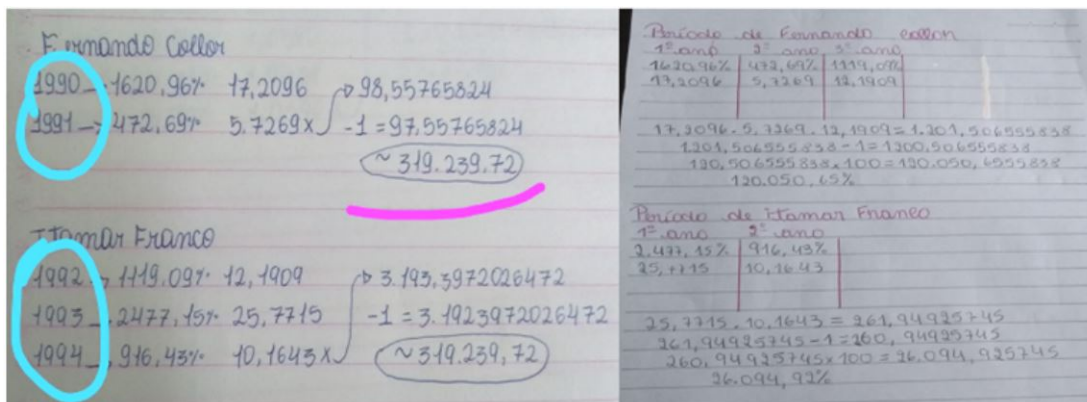 Fernando Collor
1990 → 1620,96% 17,2096 → 98,55765824
1991 → 472,69% 5,7269 x -1 = 97,55765824
~ 319.239,72
Itamar Franco
1992 → 1119,09% 12,1909 → 3.193,3972026472
1993 → 2477,15% 25,7715 -1 = 3.1923972026472
1994 → 916,43% 10,1643 x ~ 319.239,72
Período de Fernando collor
1º ano 2º ano 3º ano
1620,96% 472,69% 1119,09%
17,2096 5,7269 12,1909
17,2096 . 5,7269 . 12,1909 = 1.201,506555838
1.201,506555838 - 1 = 1200,506555838
120,506555838 x 100 = 120.050,6555838
120.050,65%
Período de itamar Franco
1º ano 2º ano
2.477,15% 916,43%
25,7715 10,1643
25,7715 . 10,1643 = 261,94925745
261,94925745 - 1 = 260,94925745
260,94925745 x 100 = 26.094,925745
26.094,92%